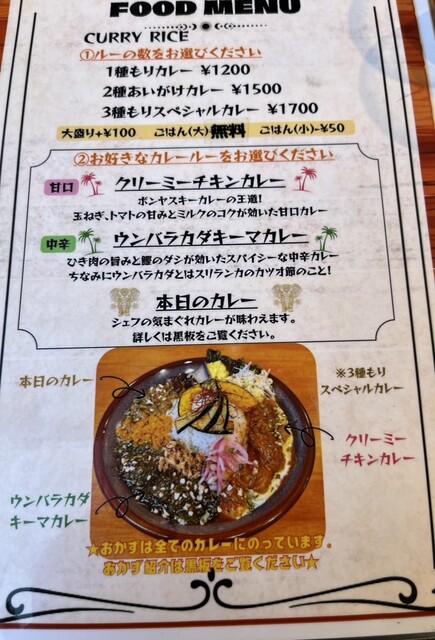 FOOD MENU
CURRY RICE
①ルーの数をお選びください
1種もりカレー ¥1200
2種あいがけカレー ¥1500
3種もりスペシャルカレー ¥1700
大盛り+¥100 ごはん(大)無料 ごはん(小)-¥50
②お好きなカレールーをお選びください
甘口 クリーミーチキンカレー
ボンヤスキーカレーの王道!
玉ねぎ、トマトの甘みとミルクのコクが効いた甘口カレー
中辛 ウンバラカダキーマカレー
ひき肉の旨みと鰹のダシが効いたスパイシーな中辛カレー
ちなみにウンバラカダとはスリランカのカツオ節のこと!
本日のカレー
シェフの気まぐれカレーが味わえます。
詳しくは黒板をご覧ください。
本日のカレー
※3種もり
スペシャルカレー
クリーミー
チキンカレー
ウンバラカダ
キーマカレー
★おかずは全てのカレーにのっています。
おかず紹介は黒板をご覧ください★